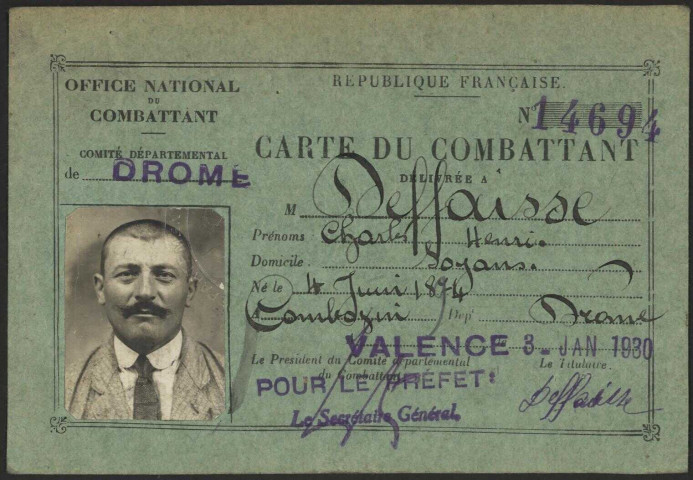 OFFICE NATIONAL
DU
COMBATTANT
COMITÉ DÉPARTEMENTAL
de DROME
RÉPUBLIQUE FRANÇAISE.
N° 14694
CARTE DU COMBATTANT
DÉLIVRÉE A
M Deffaisse
Prénoms Charles Henri.
Domicile Soyans.
Né le 4 Juin 1894
à Dep' Drome
VALENCE 3 - JAN 1930
Le President du Comité départemental
du Combattant
Le Titulaire.
POUR LE PRÉFET:
Le Secrétaire Général.
Deffaisse